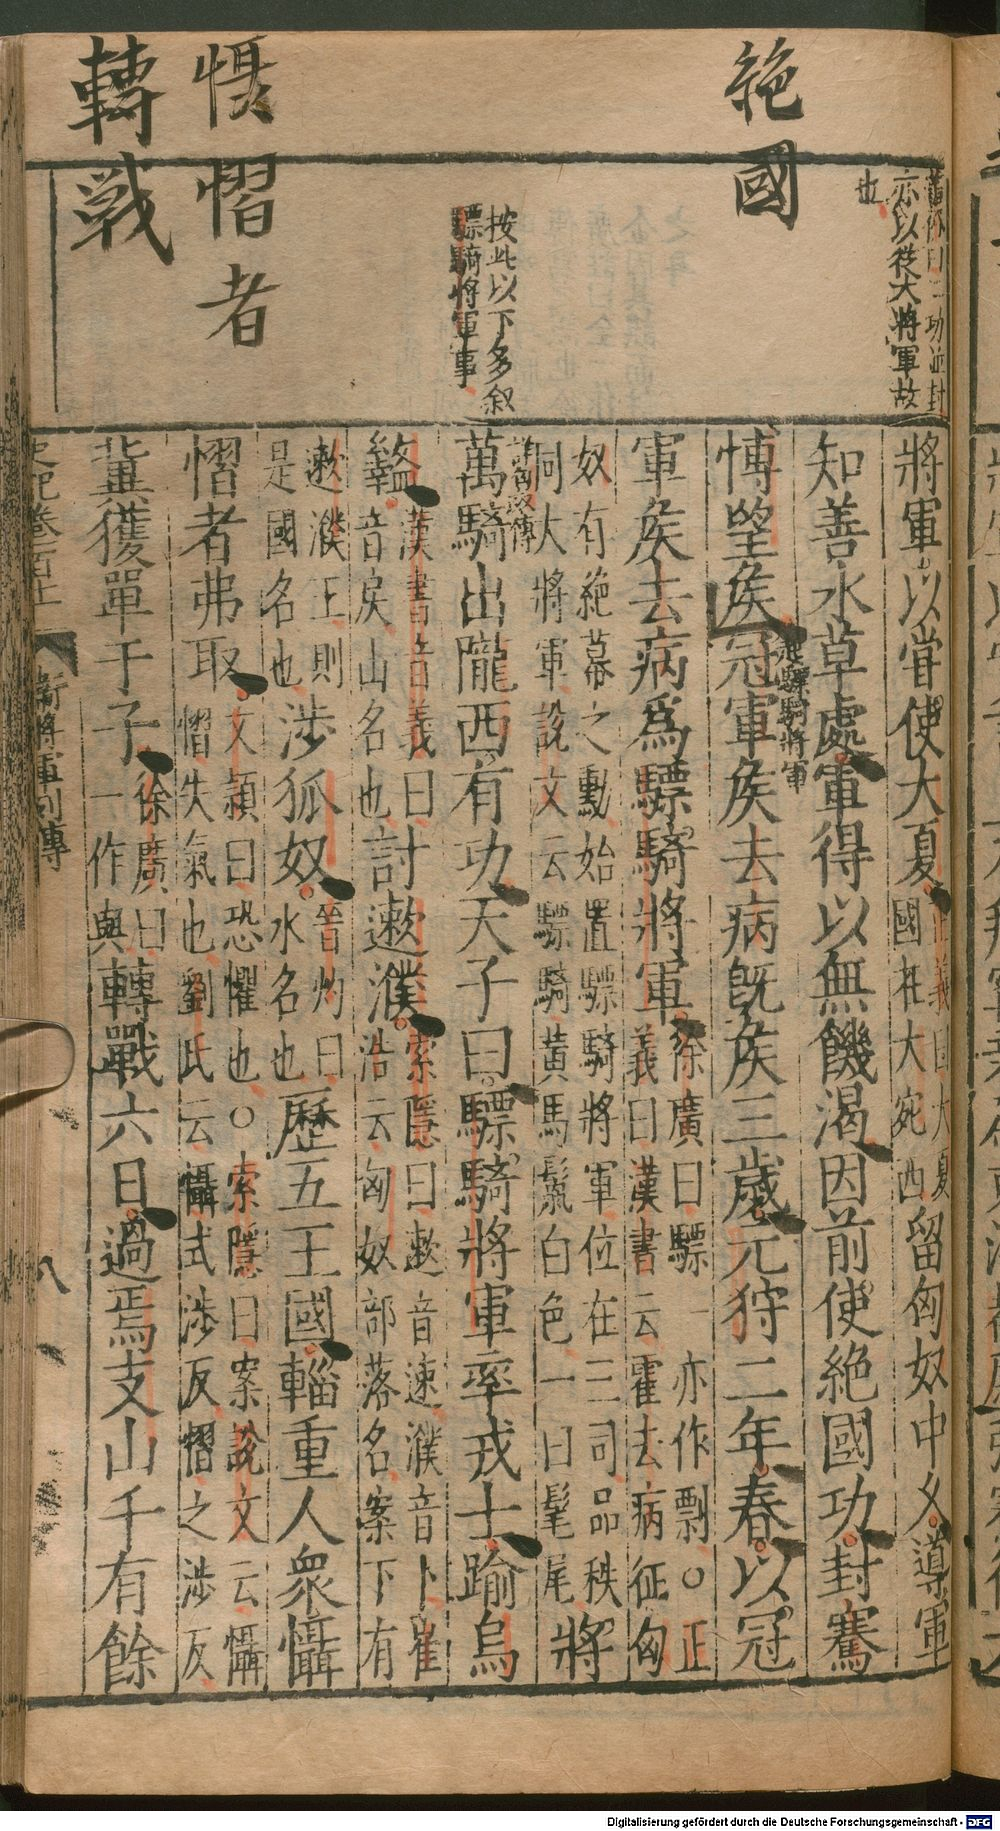 絶國
懾慴者
轉戰
亦以從大將軍故
也
按此以下多叙
驃騎將軍事
將軍以嘗使大夏正義曰大夏國在大宛西留匈奴中久導軍
知善水草處軍得以無饑渴因前使絶國功封騫
博望侯冠軍侯去病既侯三歲元狩二年春以冠
軍侯去病爲驃騎將軍徐廣曰驃一亦作剽○正義曰漢書云霍去病征匈
奴有絶幕之勳始置驃騎將軍位在三司品秩同大將軍說文云驃騎黃馬鬣白色一曰髦尾將
萬騎出隴西有功天子曰驃騎將軍率戎士踰烏
盭漢書音義曰音戾山名也討遬濮索隱曰遬音速濮音卜崔浩云匈奴部落名案下有
遬濮王則是國名也涉狐奴晉灼曰水名也歷五王國輜重人衆懾
慴者弗取文穎曰恐懼也○索隱曰案說文云懾慴失氣也劉氏云懾式涉反慴之涉反
冀獲單于子徐廣曰一作與轉戰六日過焉支山千有餘
衛將軍列傳
八
Digitalisierung gefördert durch die Deutsche Forschungsgemeinschaft - DFG